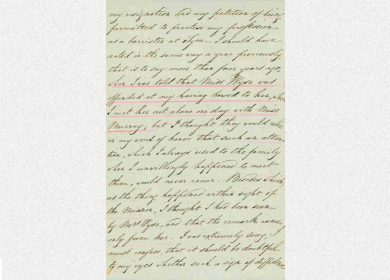 my resignation and my petition of being
permitted to practise my profession
as a barrister at Syra. I should have
acted in the same way a year previously
that is to say more than four years ago,
when I was told that Miss Wyse was
offended at my having bowed to her, when
I met her out alone one day with Miss
Murray, but I thought they would rely
on my word of honor that such an atten-
tion, which I always used to the family
when I unwittingly happened to meet
them, would never recur. Besides which
as the thing happened within sight of
the Mission, I thought I had been seen
by Mr Wyse, and that the remark came
only from her. I was extremely sorry I
must confess, that it should be doubtful
to my eyes whether such a sign of